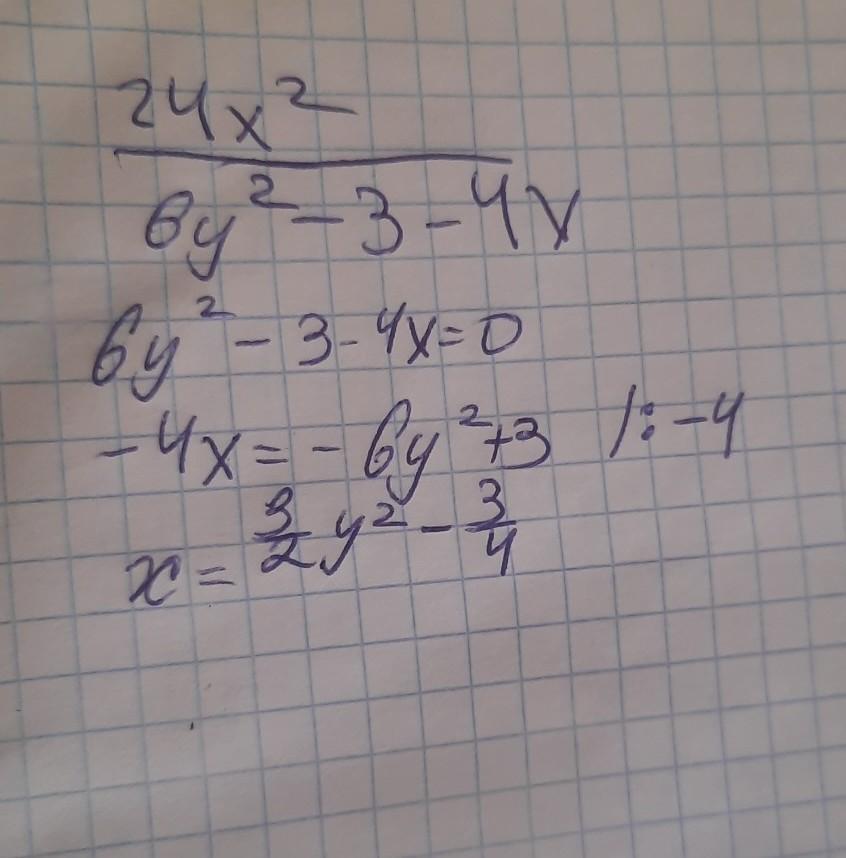 24x²
6y² - 3 - 4x
6y² - 3 - 4x = 0
-4x = -6y² + 3 /: -4
x = 3/2 y² - 3/4